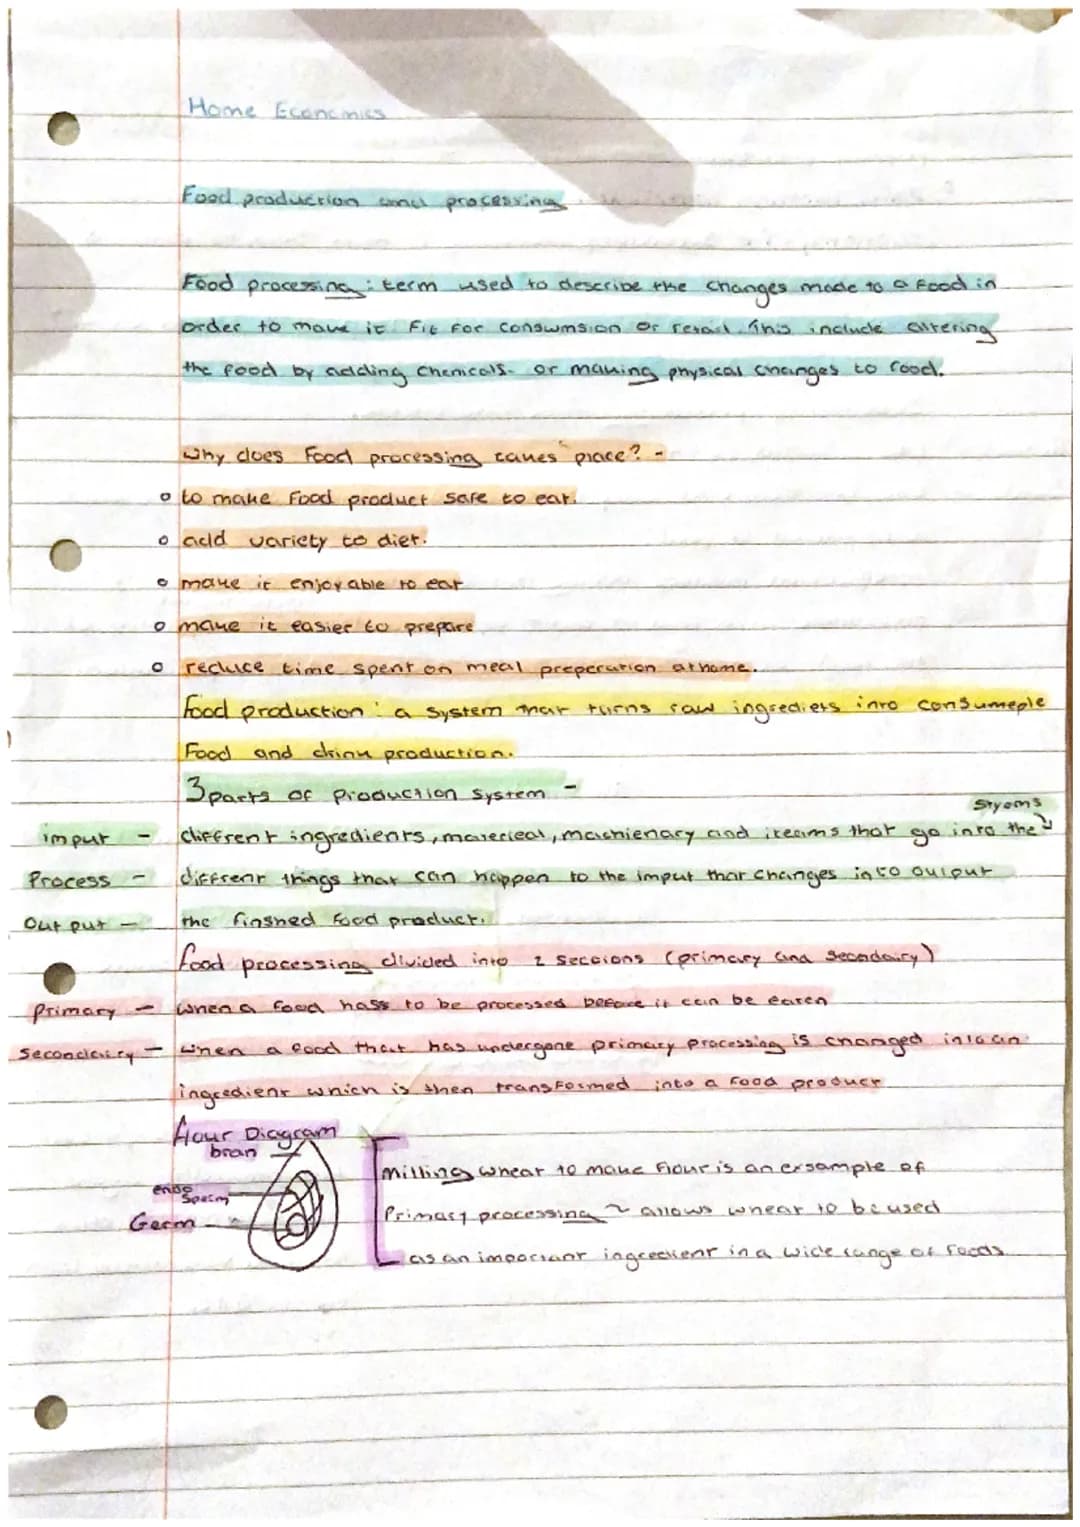 Home Economics
Food production and processing
Food processing : term used to describe the changes made to a food in
order to make it fit for consumsion or retail. This include altering
the food by adding chemicals. or making physical changes to food.
Why does food processing takes place? -
to make food product safe to eat.
add variety to diet.
make it enjoyable to eat
make it easier to prepare
reduce time spent on meal preperation at home.
Food production : a system that turns raw ingrediets into consumeple
Food and drink production.
3 parts of production system -
imput - diffrent ingredients, matereial, machienary and iteams that go into the systoms
Process - diffrent things that can happen to the imput that changes into output
Out put - the finshed food product.
food processing divided into 2 sections (primary and secondairy)
Primary - when a food hass to be processed before it can be eaten
Secondairy - when a food that has undergone primary processing is changed into an
ingredient which is then transformed into a food product
flour Diagram
bran
endosperm
Germ
Milling wheat to make flour is an exsample of
Primary processing ~ allows wheat to be used
as an important ingredient in a wide range of foods